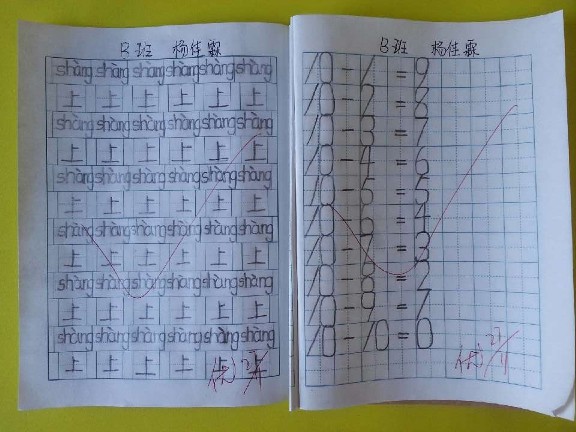 B班 杨佳霖
shàng shàng shàng shàng shàng shàng
上 上 上 上 上 上
shàng shàng shàng shàng shàng shàng
上 上 上 上 上 上
shàng shàng shàng shàng shàng shàng
上 上 上 上 上 上
shàng shàng shàng shàng shàng shàng
上 上 上 上 上 上
shàng shàng shàng shàng shàng shàng
上 上 上 上 上 上
shàng shàng shàng shàng shàng shàng
上 上 上 上 上 上
优 27/11
B班 杨佳霖
10-1=9
10-2=8
10-3=7
10-4=6
10-5=5
10-6=4
10-7=3
10-8=2
10-9=1
10-10=0
优 27/11